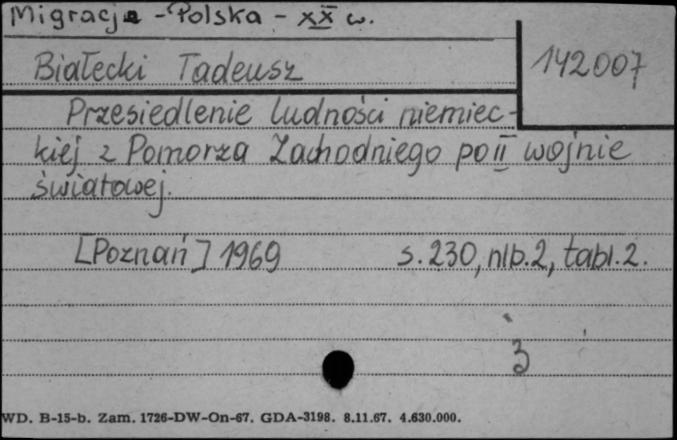 Migracje - Polska - XX w.
Białecki Tadeusz
142007
Przesiedlenie ludności niemiec-
kiej z Pomorza Zachodniego po II wojnie
światowej.
[Poznań] 1969 s. 230, nlb. 2, tabl. 2.
3
WD. B-15-b. Zam. 1726-DW-On-67. GDA-3198. 8.11.67. 4.630.000.